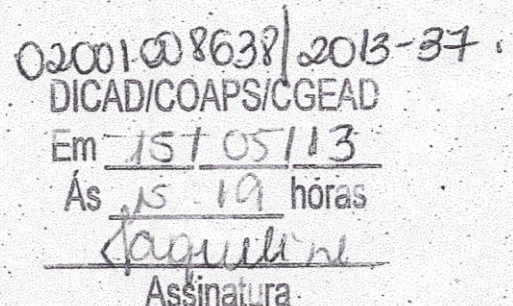 02001.008638/2013-37.
DICAD/COAPS/CGEAD
Em 15/05/13
Ás 15.19 horas
Jaqueline
Assinatura